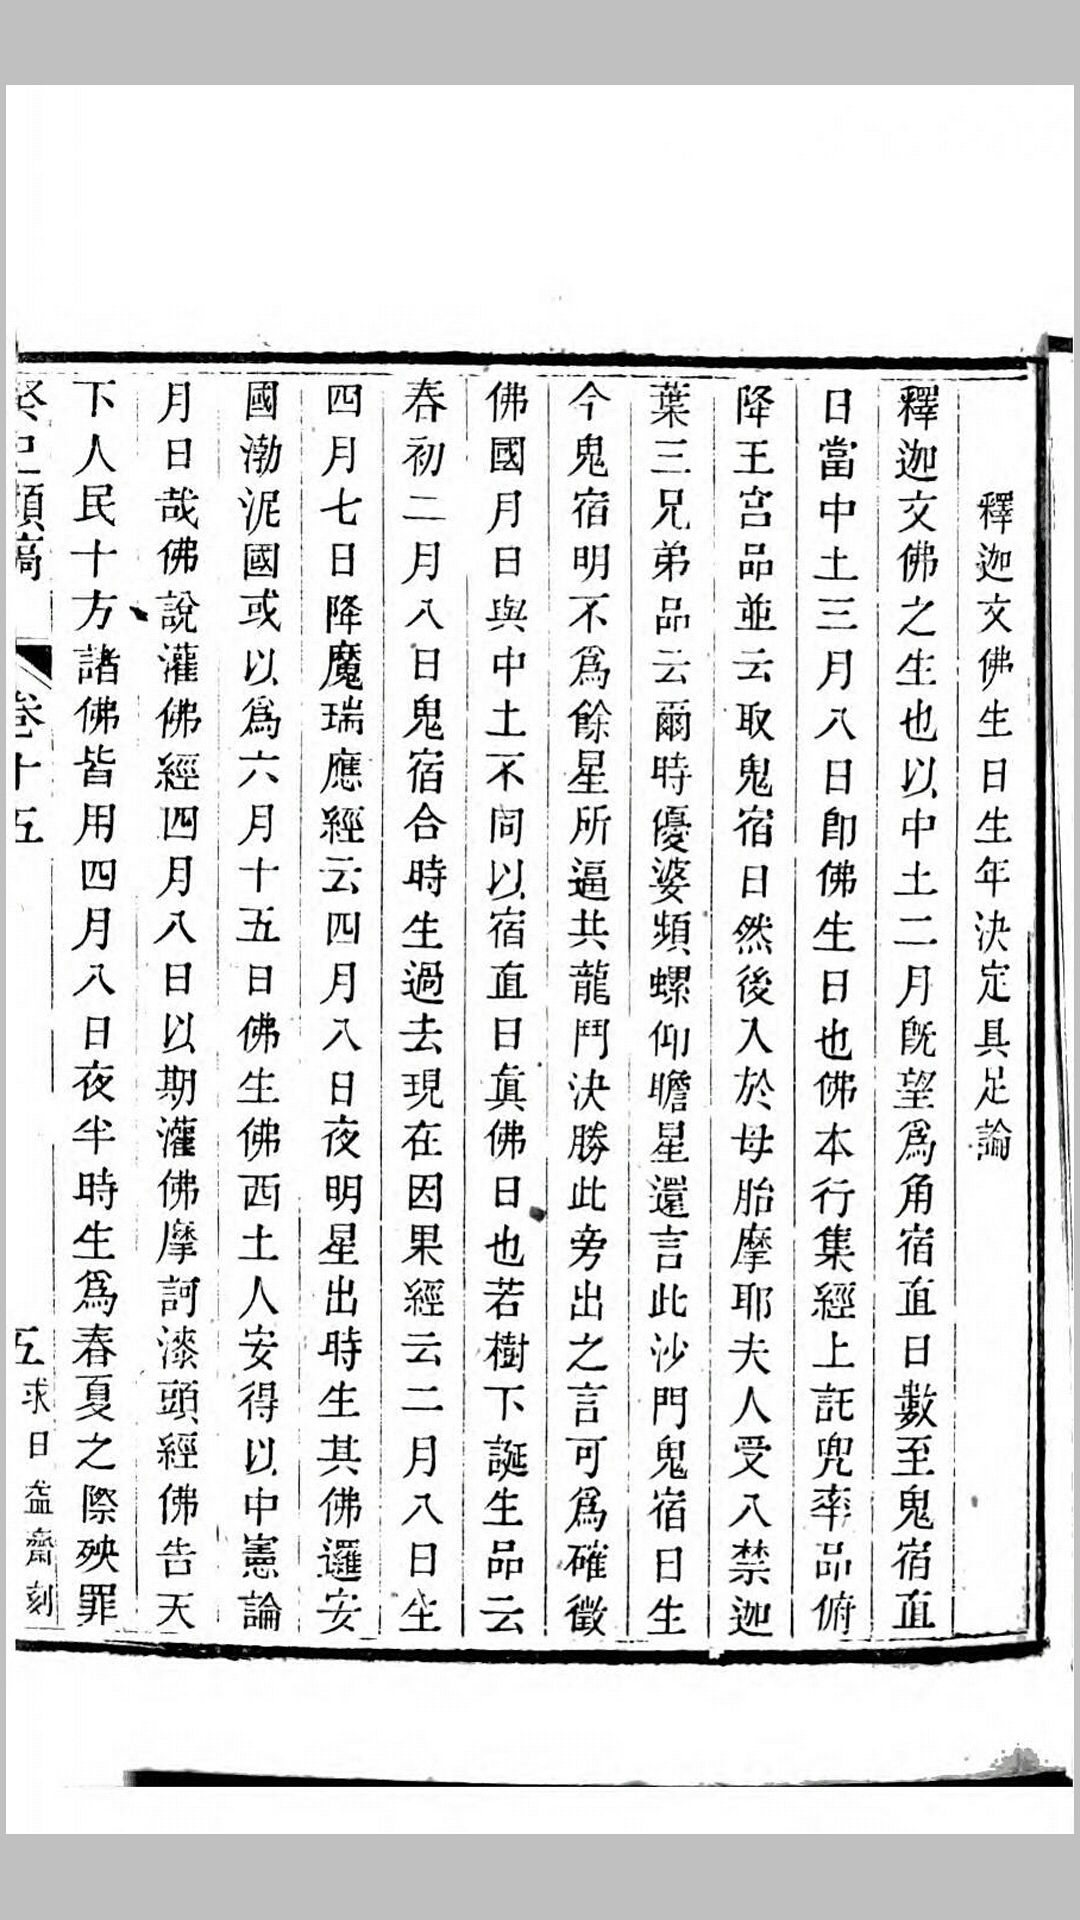 釋迦文佛生日生年決定具足論
釋迦文佛之生也以中土二月旣望爲角宿直日數至鬼宿直
日當中土三月八日卽佛生日也佛本行集經上託兜率品俯
降王宮品並云取鬼宿日然後入於母胎摩耶夫人受八禁迦
葉三兄弟品云爾時優婆頻螺仰瞻星還言此沙門鬼宿日生
今鬼宿明不爲餘星所逼共龍鬥決勝此旁出之言可爲確徵
佛國月日與中土不同以宿直日眞佛日也若樹下誕生品云
春初二月八日鬼宿合時生過去現在因果經云二月八日生
四月七日降魔瑞應經云四月八日夜明星出時生其佛邏安
國渤泥國或以爲六月十五日佛生佛西土人安得以中憲論
月日哉佛說灌佛經四月八日以期灌佛摩訶漆頭經佛告天
下人民十方諸佛皆用四月八日夜半時生爲春夏之際殃罪
癸巳類稿 卷十五 五 求日益齋刻